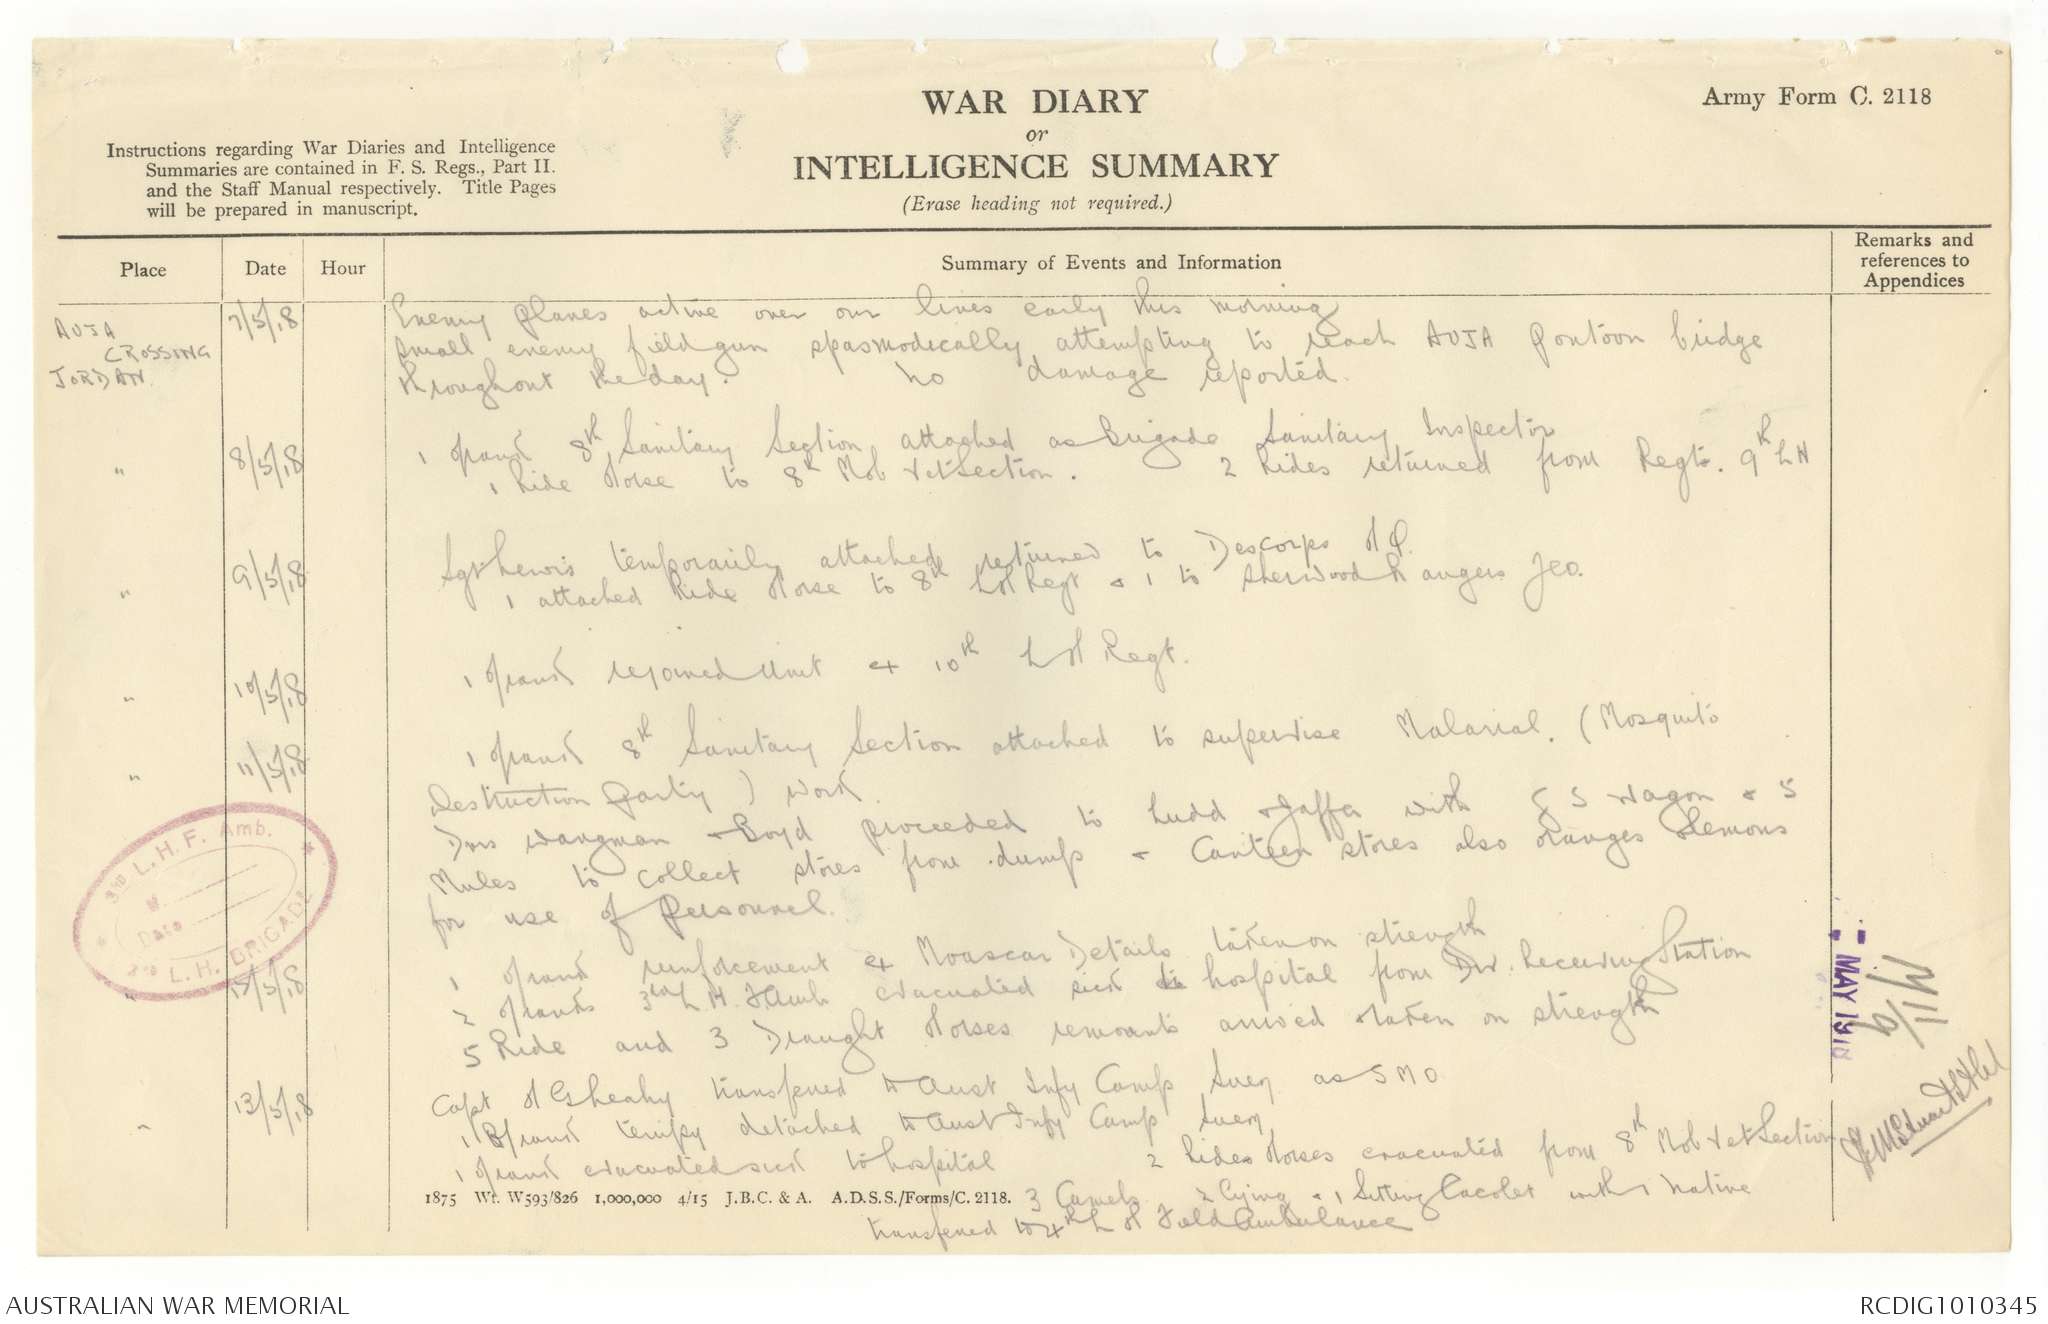 WAR DIARY
or
INTELLIGENCE SUMMARY
(Erase heading not required.)
Army Form C. 2118
Instructions regarding War Diaries and Intelligence
Summaries are contained in F. S. Regs., Part II.
and the Staff Manual respectively. Title Pages
will be prepared in manuscript.
Place Date Hour Summary of Events and Information Remarks and references to Appendices
AUJA CROSSING JORDAN 7/5/18 Enemy planes active over our lines early this morning
small enemy field gun spasmodically attempting to reach AUJA pontoon bridge
throughout the day. No damage reported.
" 8/5/18 1 of rank 8th Sanitary Section attached as Brigade Sanitary Inspector
1 Ride Horse to 8th Mob Vet Section. 2 Rides returned from Regt. 9th LH
" 9/5/18 Sgt Lewis temporarily attached returned to Descorps HQ.
1 attached Ride Horse to 8th LH Regt & 1 to Sherwood Rangers Yeo.
" 10/5/18 1 of rank rejoined unit ex 10th LH Regt.
" 11/5/18 1 of rank 8th Sanitary Section attached to supervise Malarial. (Mosquito
Destruction party) work.
Dvrs Wangman & Boyd proceeded to Ludd & Jaffa with G S Wagon & 5
Mules to collect stores from dump & Canteen stores also oranges & lemons
for use of personnel.
" 12/5/18 1 of rank reinforcement ex Moascar Details taken on strength
2 of ranks 3rd L.H. F Amb evacuated sick to hospital from Div. Receiving Station
5 Ride and 3 Draught Horses remounts arrived & taken on strength
" 13/5/18 Capt H G Sheahy transferred to Aust Infy Camp Suez as SMO
1 B/rank tempy detached to Aust Infy Camp Suez
1 of rank evacuated sick to hospital 2 Rides Horses evacuated from 8th Mob Vet Section
3 Camels 2 lying & 1 Sitting Cacolet with 1 Native
transferred to 4th L H Field Ambulance
3RD L.H.F. Amb.
Date
3RD L.H. BRIGADE
MAY 1918
1875 Wt. W593/826 1,000,000 4/15 J.B.C. & A. A.D.S.S./Forms/C. 2118.
AUSTRALIAN WAR MEMORIAL
RCDIG1010345